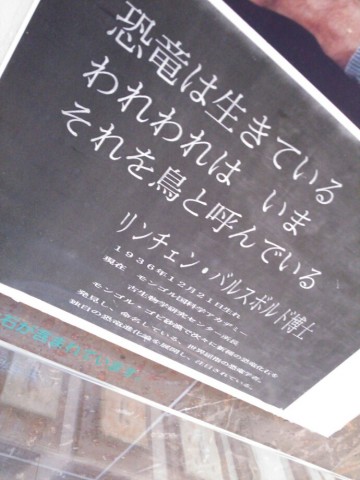 恐竜は生きている
われわれは いま
それを鳥と呼んでいる
リンチェン・バルスボルド博士
1936年12月21日生れ
現在 モンゴル国科学アカデミー
古生物学研究センター所長
モンゴル・ゴビ砂漠で次々に新種の恐竜化石を
発見し、命名している、世界屈指の恐竜学者。
独自の恐竜進化論を展開し、注目されている。
石が含まれています。